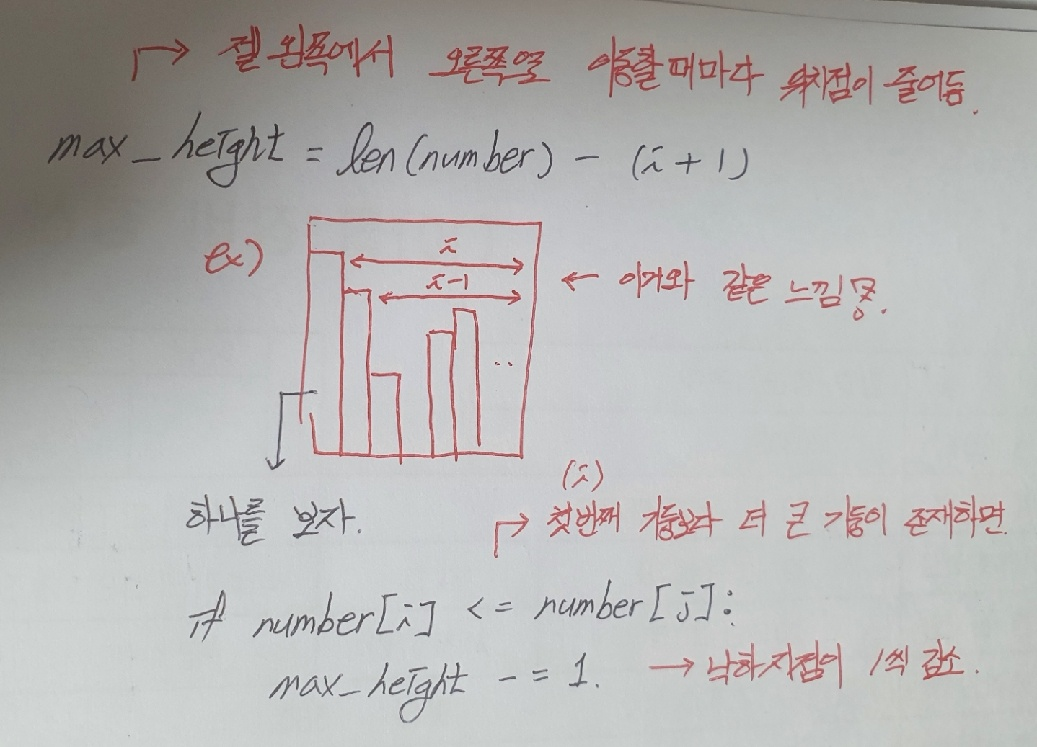 → 젤 왼쪽에서 오른쪽열 이동할 때마다 위치점이 줄어듬.
max_height = len(number) - (i + 1)
ex)
i
i-1
← 이거와 같은 느낌
..
하나를 보자.
(i)
→ 첫번째 기둥보다 더 큰 기둥이 존재하면.
if number[i] <= number[j]:
max_height -= 1. → 낙하지점이 1씩 감소.